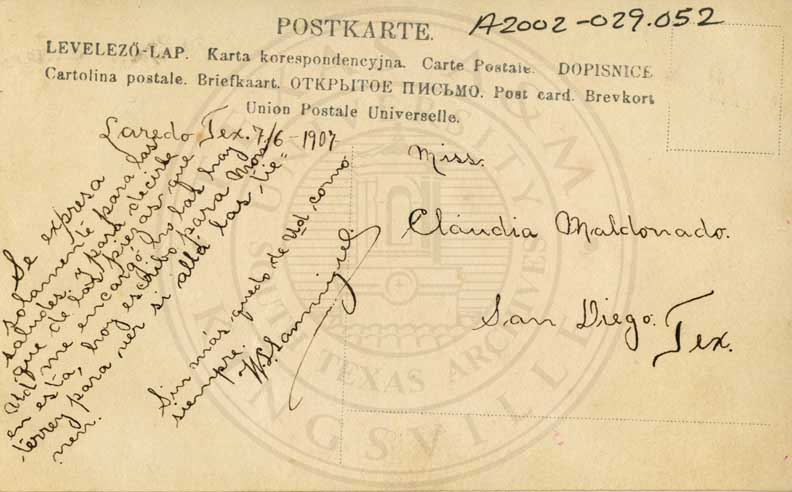 A2002-029.052
POSTKARTE.
LEVELEZŐ-LAP. Karta korespondencyjna. Carte Postale. DOPISNICE
Cartolina postale. Briefkaart. ОТКРЫТОЕ ПИСЬМО. Post card. Brevkort
Union Postale Universelle.
Laredo Tex. 7/6-1907
Se expresa
solamente para las
saludes, y para decirle
que de las piezas que
Ud me encargó, no las hay
en está, hoy escribo para Mon=
terrey para ver si allá las tie=
nen.
Sin más quedo de Ud, como
siempre.
Miss.
Claudia Maldonado.
San Diego. Tex.
SOUTH TEXAS ARCHIVES
KINGSVILLE